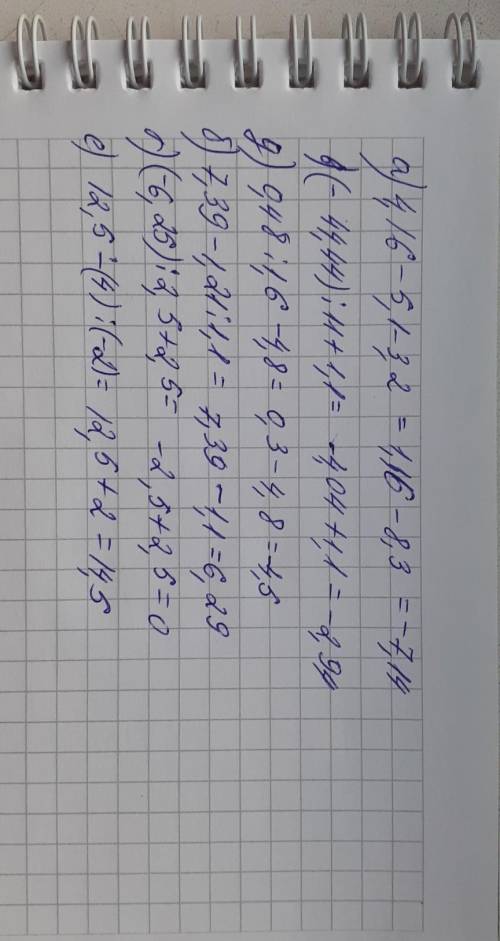 а) 4,16 - 5,1 - 3,2 = 1,16 - 8,3 = -7,14
в) (-4,44) : 4 + 1,1 = -4,04 + 1,1 = -2,94
д) 0,48 : 1,6 - 4,8 = 0,3 - 4,8 = -4,5
б) 7,39 - 1,21 : 1,1 = 7,39 - 1,1 = 6,29
г) (-6,25) : 2,5 + 2,5 = -2,5 + 2,5 = 0
е) 12,5 - (4) : (-2) = 12,5 + 2 = 14,5